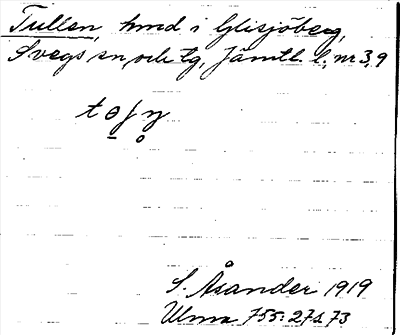 Tullen, hmd i Glisjöberg,
Svegs sn, och tg, Jämtl. l., nr 3,9
S. Åsander 1919
Ulma 755: 271. 73